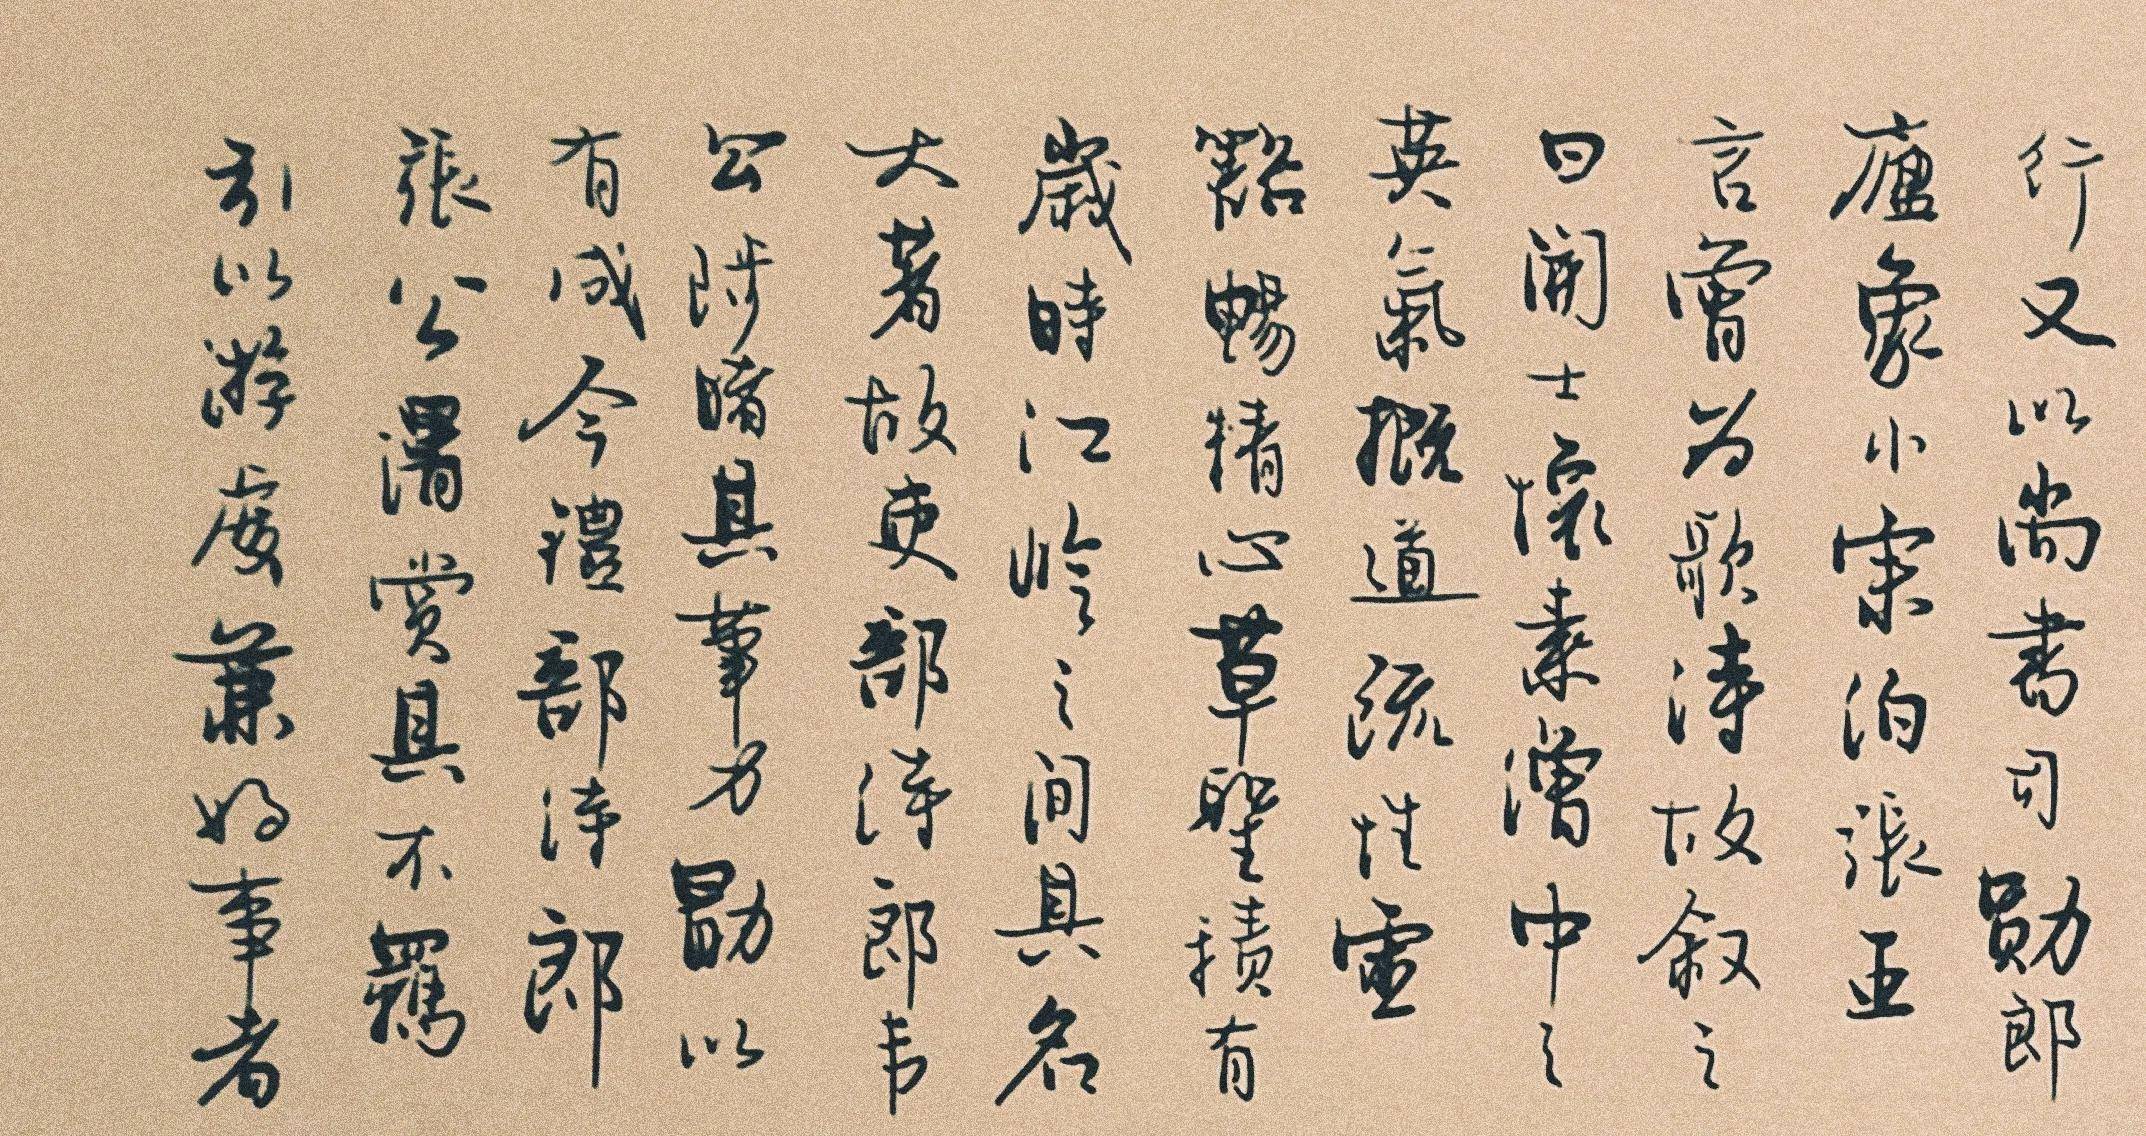 行又以尚書司勛郎
廬象小宗泊張正
言曾為歌詩故敘之
曰開士懷素僧中之
英氣概通疏性靈
豁暢精心草聖積有
歲時江嶺之間其名
大著故吏部侍郎韋
公陟睹其筆力勗以
有成今禮部侍郎
張公謂賞其不羈
引以游處兼好事者